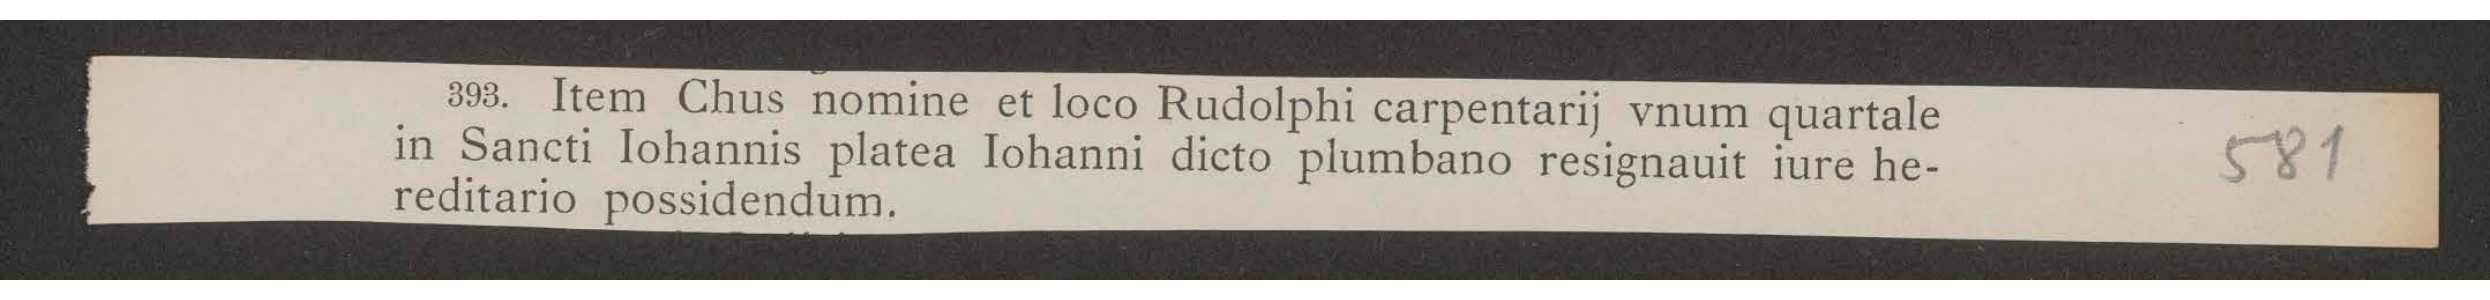 393. Item Chus nomine et loco Rudolphi carpentarij vnum quartale
in Sancti Iohannis platea Iohanni dicto plumbano resignauit iure he-
reditario possidendum.
581